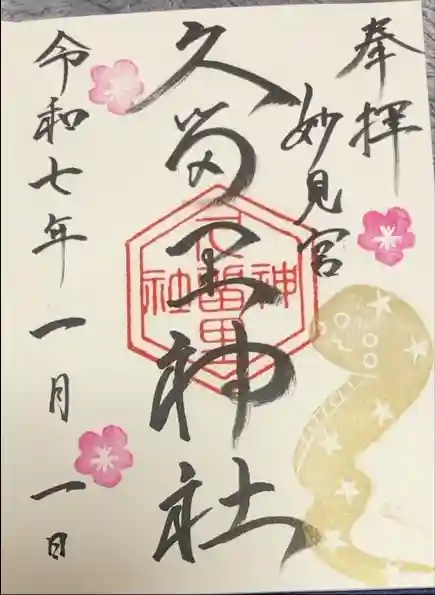 奉拝
妙見宮
久留里神社
久留里神社
令和七年一月一日